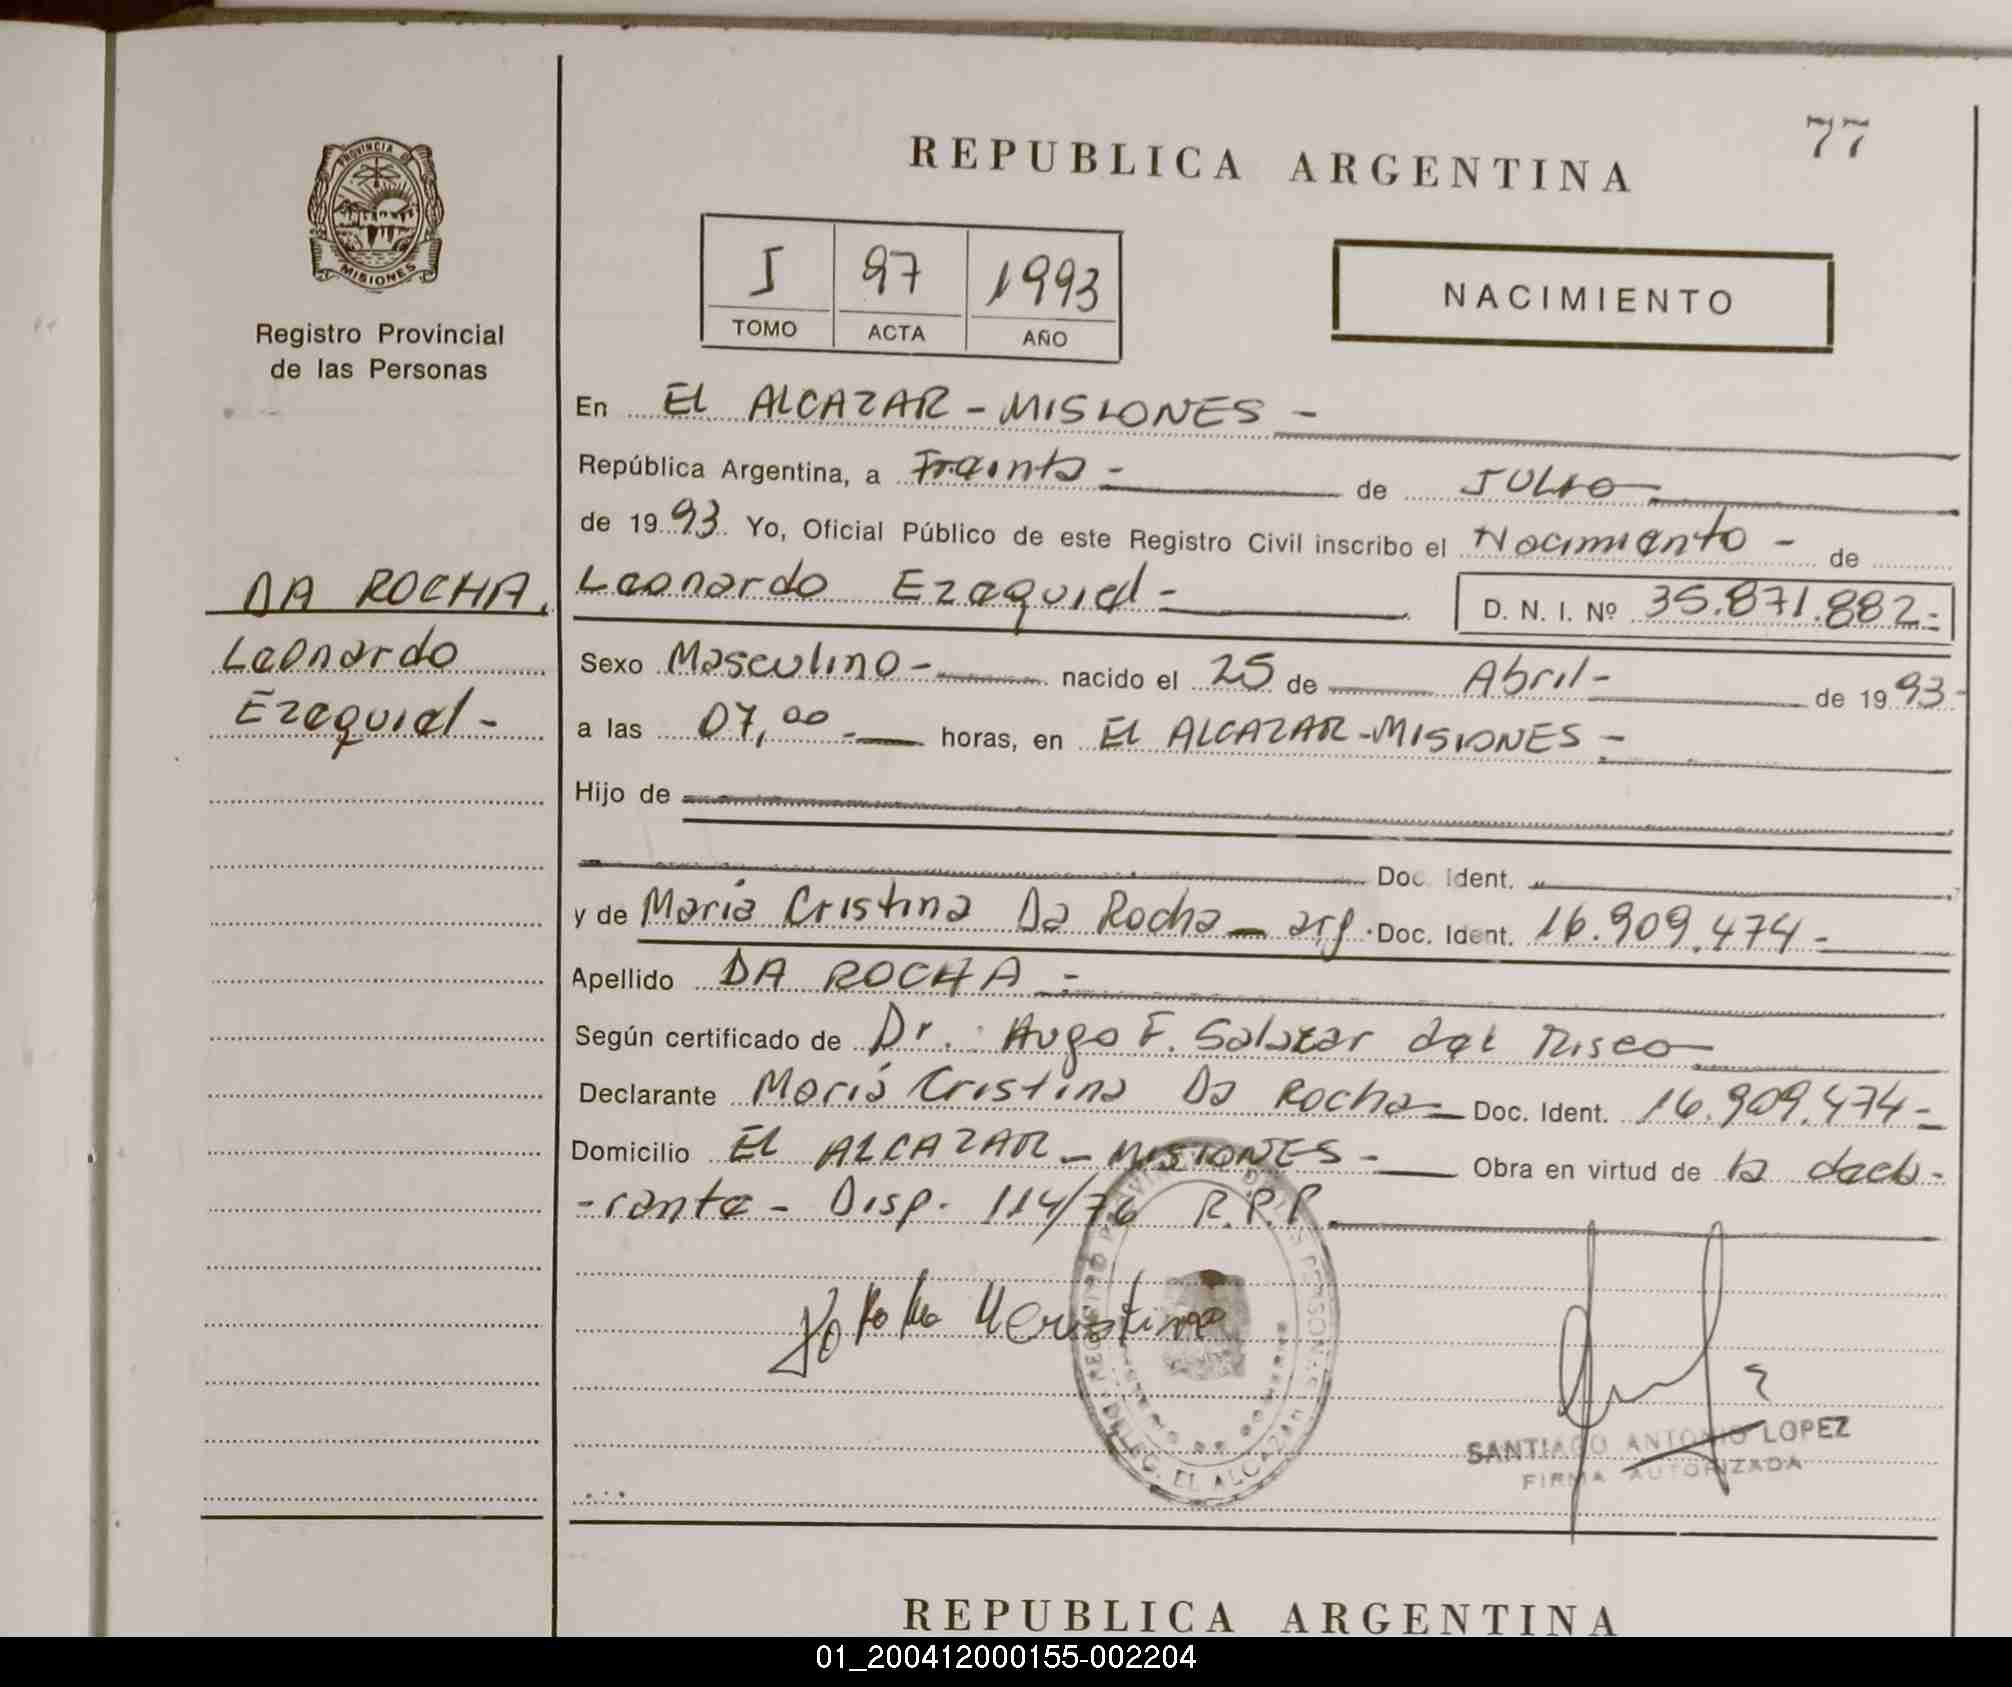 77
REPUBLICA ARGENTINA
PROVINCIA DE
MISIONES
Registro Provincial
de las Personas
I 97 1993
TOMO ACTA AÑO
NACIMIENTO
En EL ALCAZAR - MISIONES -
República Argentina, a Treinta - de JULIO
de 1993 Yo, Oficial Público de este Registro Civil inscribo el Nacimiento - de
DA ROCHA,
Leonardo
Ezequiel -
Leonardo Ezequiel - D. N. I. Nº 35.871.882-
Sexo Masculino - nacido el 25 de Abril - de 1993-
a las 07,00 - horas, en EL ALCAZAR - MISIONES -
Hijo de
Doc. Ident.
y de María Cristina Da Rocha - arg. Doc. Ident. 16.909.474 -
Apellido DA ROCHA -
Según certificado de Dr.: Hugo F. Salazar del Risco
Declarante María Cristina Da Rocha - Doc. Ident. 16.909.474 -
Domicilio EL ALCAZAR - MISIONES - Obra en virtud de la decla-
-rante - Disp. 114/76 R.P.P.
REGISTRO PROVINCIAL DE LAS PERSONAS
DELEG. EL ALCAZAR
SANTIAGO ANTONIO LOPEZ
FIRMA AUTORIZADA
REPUBLICA ARGENTINA
01_200412000155-002204